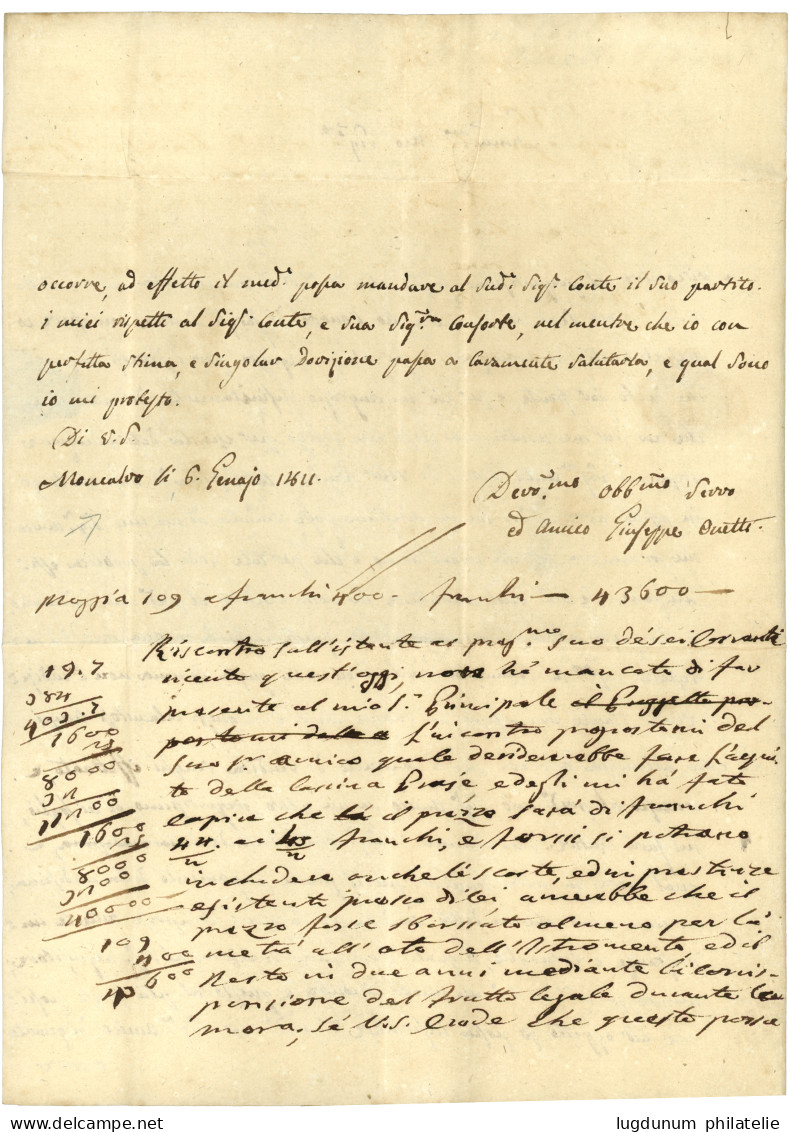 occorre, ad effetto il med.º possa mandare al Sud.º Sig.r Conte il suo partito.
i miei rispetti al Sig.r Conte, e sua Sig.ra Consorte, nel mentre che io con
perfetta stima, e singolar Devozione passo a caramente salutarla, e qual sono
io mi protesto.
Di V. S.
Moncalvo li 6. Genajo 1811.
Devo.mo Obb.mo Servo
ed amico Giuseppe
moggia 109 a franchi 400 - franchi - 43600 -
Riscontro sull'istante al preg.mo suo
quest'oggi, non ho mancato di far
presente al mio S.r Principale il Progetto
l'incontro propostomi del
suo S.r amico quale desidererebbe fare l'acqui-
to della cascina ed egli mi ha fatto
capire che la il prezzo sarà di franchi
44. ai 45 franchi, e forsi si potranno
includere anche le scorte, ed
esistenti presso di lei, amerebbe che il
prezzo fosse sborsato almeno per la
metà all'ato dell'Istromento ed il
Resto in due anni mediante la corris-
pensione del frutto legale durante la
mora, Se V.S. Crede che questo possa
19.7
384
403.7
1600
25
8000
32
1600
25
8000
3200
40000
109
400
43600
lugdunum philatelie